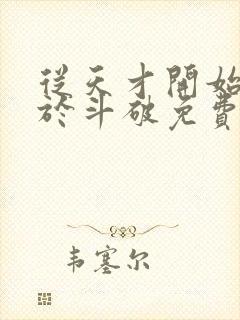 從天才開始
於斗破免費
韦塞尔